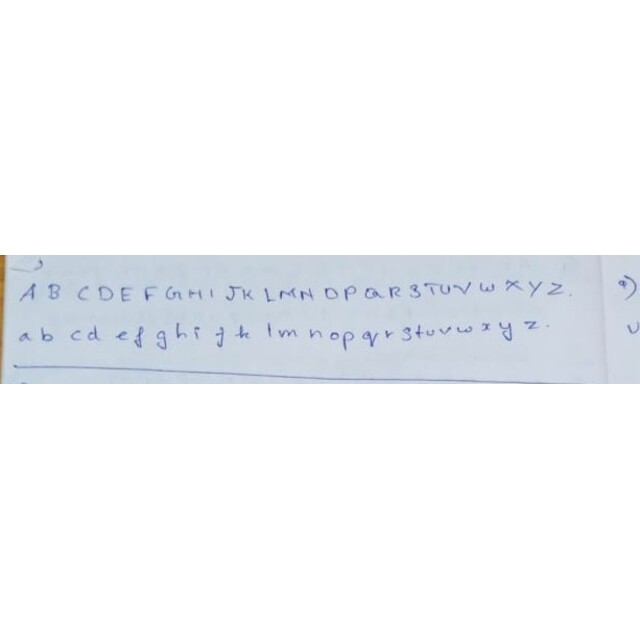 A B C D E F G H I J K L M N O P Q R S T U V W X Y Z. a)
a b c d e f g h i j k l m n o p q r s t u v w x y z.